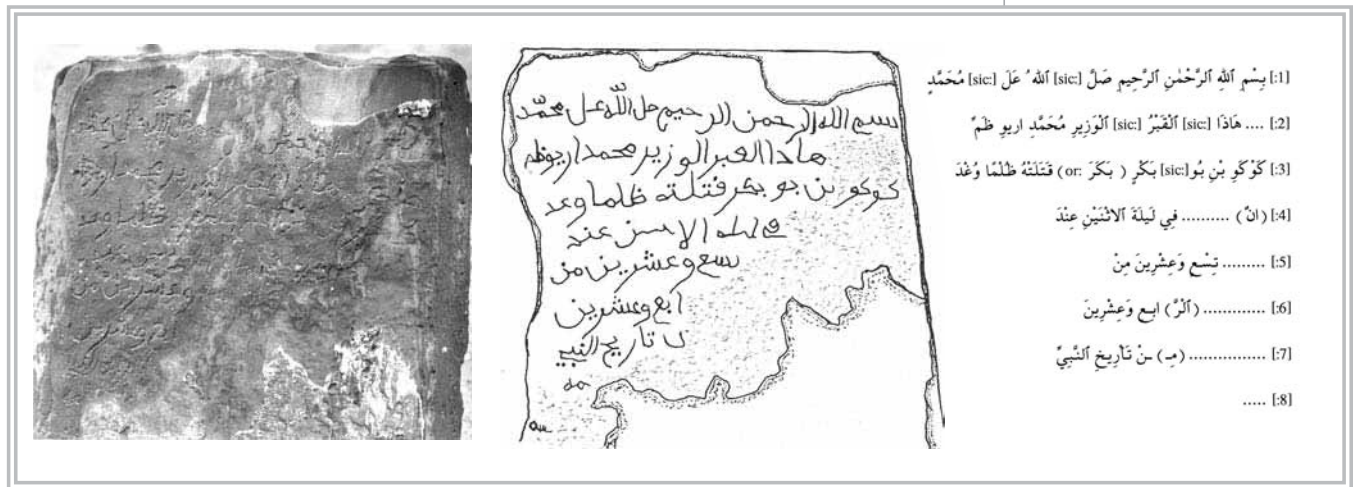 بسم الله الرحمن الرحيم صل الله عل محمد
هاذا القبر الوزير محمد اريوظم
كوكو بن بو بكر قتلته ظلما وعد
في ليلة الاثنين عند
تسع وعشرين من
ابع وعشرين
ن تاريخ النبي
[1:] بِسْمِ ٱللهِ ٱلرَّحْمٰنِ ٱلرَّحِيمِ صَلَّ [sic:] ٱللهُ عَلَ [sic:] مُحَمَّدٍ
[2:] .... هَاذَا [sic:] ٱلْقَبْرُ [sic:] ٱلْوَزِيرِ مُحَمَّدِ اريوِ ظَمْ
[3:] كَوْكَوِ بْنِ بُو[sic:] بَكْرٍ ( بَكَرَ :or) قَتَلَتْهُ ظُلْمًا وُعْدَ
[4:] (انْ) .......... فِي لَيلَةَ ٱلاثْنَيْنِ عِنْدَ
[5:] ......... تِسْعٍ وَعِشْرِينَ مِنْ
[6:] ............. (ٱلْرَّ) ابِعِ وَعِشْرِينَ
[7:] ................ (مِـ) ـنْ تَأْرِيخِ ٱلنَّبِيِّ
[8:] .....